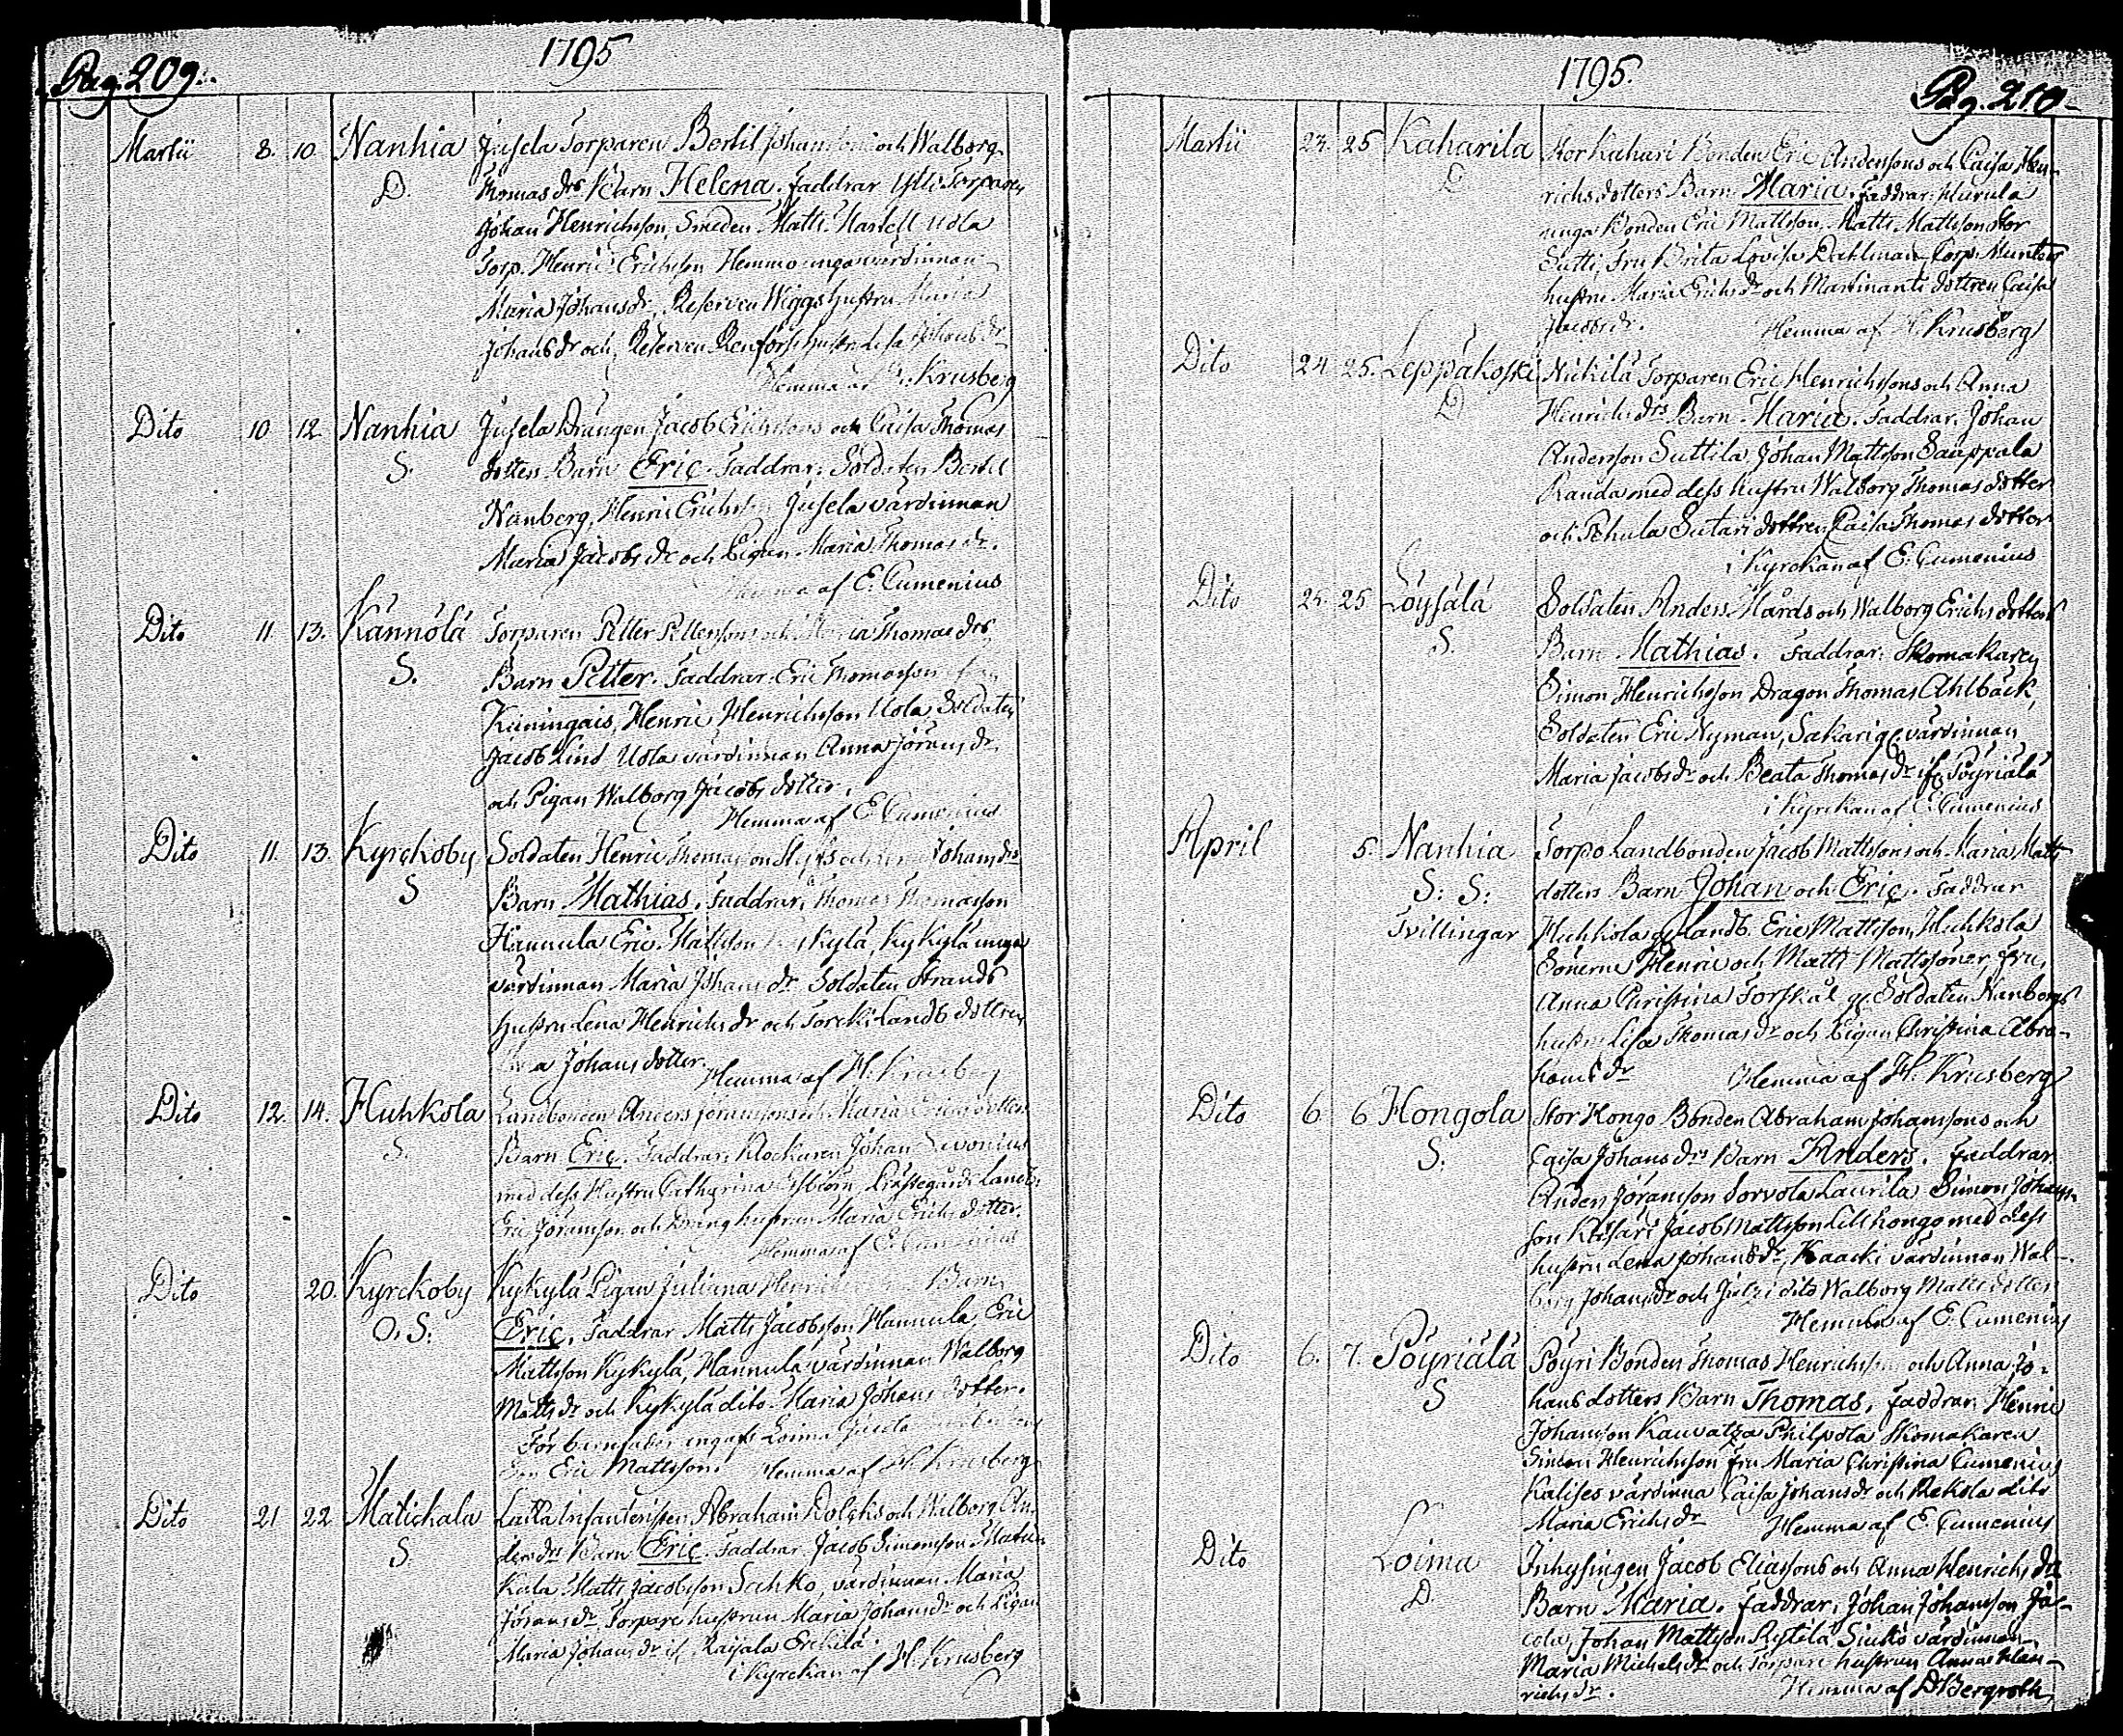 Pag. 209.
1795
Martii 8. 10 Nanhia Jusela Torparen Bertil Johans och Walborg
D. Thomas drs Barn Helena. Faddrar Torparen
Johan Henrichsson, Smeden Matts Uola
Torp. Henric Erichsson Hemmo unga värdinnan
Maria Johans dr, Reserven Wiggs hustru Maria
Johans dr och Reserven Renfors hustru Lisa Johans dr
Hemma af H. Krusberg
Dito 10 12 Nanhia Jusela Drängen Jacob Erichssons och Caisa Thomas
S. dotters Barn Eric. Faddrar: Soldaten Bertil
Nanberg, Henric Erichsson Jusela värdinnan
Maria Jacobs dr och Pigan Maria Thomas dr.
Hemma af E. Cumenius
Dito 11. 13. Kännölä Torparen Petter Pettersons och Maria Thomae drs
S. Barn Petter. Faddrar. Eric Thomasson
Kuningais, Henric Henrichsson Uola Soldaten
Jacob Lind Uola värdinnan Anna Jörans dr.
och Pigan Walborg Jacobs dotter.
Hemma af E. Cumenius
Dito 11. 13. Kyrckoby Soldaten Henric Thomasson och Johans drs
S Barn Mathias. Faddrar, Thomas Thomasson
Hannula Eric Mattsson Kykylä, Kykylä unga
värdinnan Maria Johans dr Soldaten Strands
hustru Lena Henrichs dr och Landb dottren
Johans dotter.
Hemma af H. Krusberg
Dito 12. 14. Huhkola Landbonden Anders Jöranssons och Maria Erichs dotters
S. Barn Eric. Faddrar, Klockaren Johan
med dess Hustru Catharina Prästegårds Landb.
Eric Jöransson och Dräng hustrun Maria Erichs dotter.
Hemma af E. Cumenius
Dito 20. Kyrckoby Kykylä Pigan Juliana Barn
O. S. Eric. Faddrar Matts Jacobsson Hannula, Eric
Mattsson Kykylä, Hannula värdinnan Walborg
Matts dr och Kykylä dito Maria Johans dotter.
För barnefader Loima
Eric Mattsson. Hemma af H. Krusberg
Dito 21 22 Matickala Lätta Infanteristen Abraham och Walborg An-
S. ders drs Barn Eric. Faddrar Jacob Simonsson Matic-
kala Matts Jacobsson Sahko, värdinnan Maria
Jörans dr Torpare hustrun Maria Johans dr och Pigan
Maria Johans dr
i Kyrckan af H. Krusberg
1795.
Pag. 210
Martii 24. 25 Kaharila Stor Kahari Bonden Eric Anderssons och Caisa Hen-
D richs dotters Barn Maria. Faddrar.
unga Bonden Eric Mattsson, Matts Mattsson Stor
Sutti, Fru Brita Lovisa Dahlman, Corp. Munters
hustru Maria Erichs dr och dottren Caisa
Jacobs dr. Hemma af H. Krusberg
Dito 24. 25. Leppäkoski Nickilä Torparen Eric Henrichssons och Anna
D Henrichs drs Barn Maria. Faddrar. Johan
Andersson Suttila Johan Mattsson Sauppala
Randa med dess hustru Walborg Thomas dotter
och dottren Caisa Thomas dotter
i Kyrckan af E. Cumenius
Dito 24. 25 Löysälä Soldaten Anders Mårds och Walborg Erichs dotters
S. Barn Mathias. Faddrar, Skomakaren
Simon Henrichsson Dragon Thomas Ahlbäck,
Soldaten Eric Nyman, Sakari värdinnan
Maria Jacobs dr och Beata Thomas dr Pöyriälä
i Kyrckan af E. Cumenius
April 5. Nanhia Torpo Landbonden Jacob Mattssons och Maria Matts
S: S: dotters Barn Johan och Eric. Faddrar
Tvillingar Huhkola Landb. Eric Mattsson, Huhkola
Sönerne Henric och Matts Mattssöner, Fru
Anna Christina Forskål Soldaten Nanbergs
hustru Lisa Thomas dr och Pigan Christina Abra-
hams dr Hemma af H. Krusberg
Dito 6. 6 Hongola Stor Hongo Bonden Abraham Johanssons och
S. Caisa Johans drs Barn Anders. Faddrar
Anders Jöransson Sorvola Laurila Simon Johans-
son Jacob Mattsson Lill hongo med dess
hustru Lena Johans dr, Kaacki värdinnan Wal-
borg Johans dr och dito Walborg Matts dotter
Hemma af E. Cumenius
Dito 6. 7. Pöyriälä Pöyri Bonden Thomas Henrichssons och Anna Jo-
S hans dotters Barn Thomas. Faddrar, Henric
Johansson Kauvatza Philpola Skomakaren
Simon Henrichsson Fru Maria Christina Cumenius
värdinna Caisa Johans dr och Rekola dito
Maria Erichs dr Hemma af E. Cumenius
Dito Loima Inhysingen Jacob Eliassons och Anna Henrichs drs
D. Barn Maria. Faddrar, Johan Johansson Ja-
cola, Johan Mattsson Rytilä, värdinnan
Maria Michels dr och Torpare hustrun Anna Hen-
richs dr. Hemma af D Bergroth